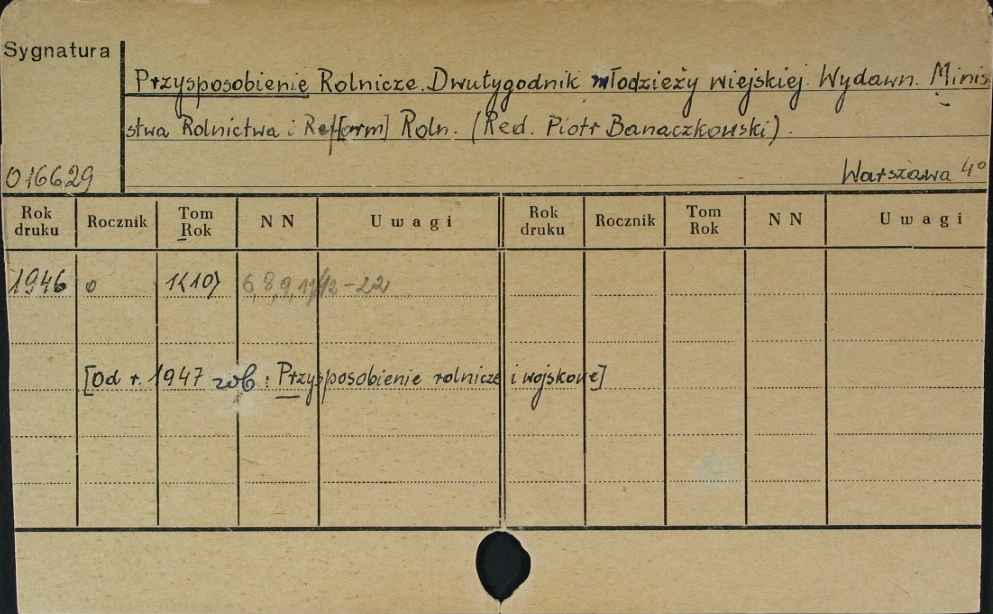 Sygnatura
Przysposobienie Rolnicze. Dwutygodnik młodzieży wiejskiej. Wydawn. Minis
stwa Rolnictwa i Ref[orm] Roln. (Red. Piotr Banaczkowski).
016629
Warszawa 4°
Rok druku Rocznik Tom Rok NN Uwagi Rok druku Rocznik Tom Rok NN Uwagi
1946 0 1<10> 6,8,9,11/12-22
[Od r. 1947 zob: Przysposobienie rolnicze i wojskowe]